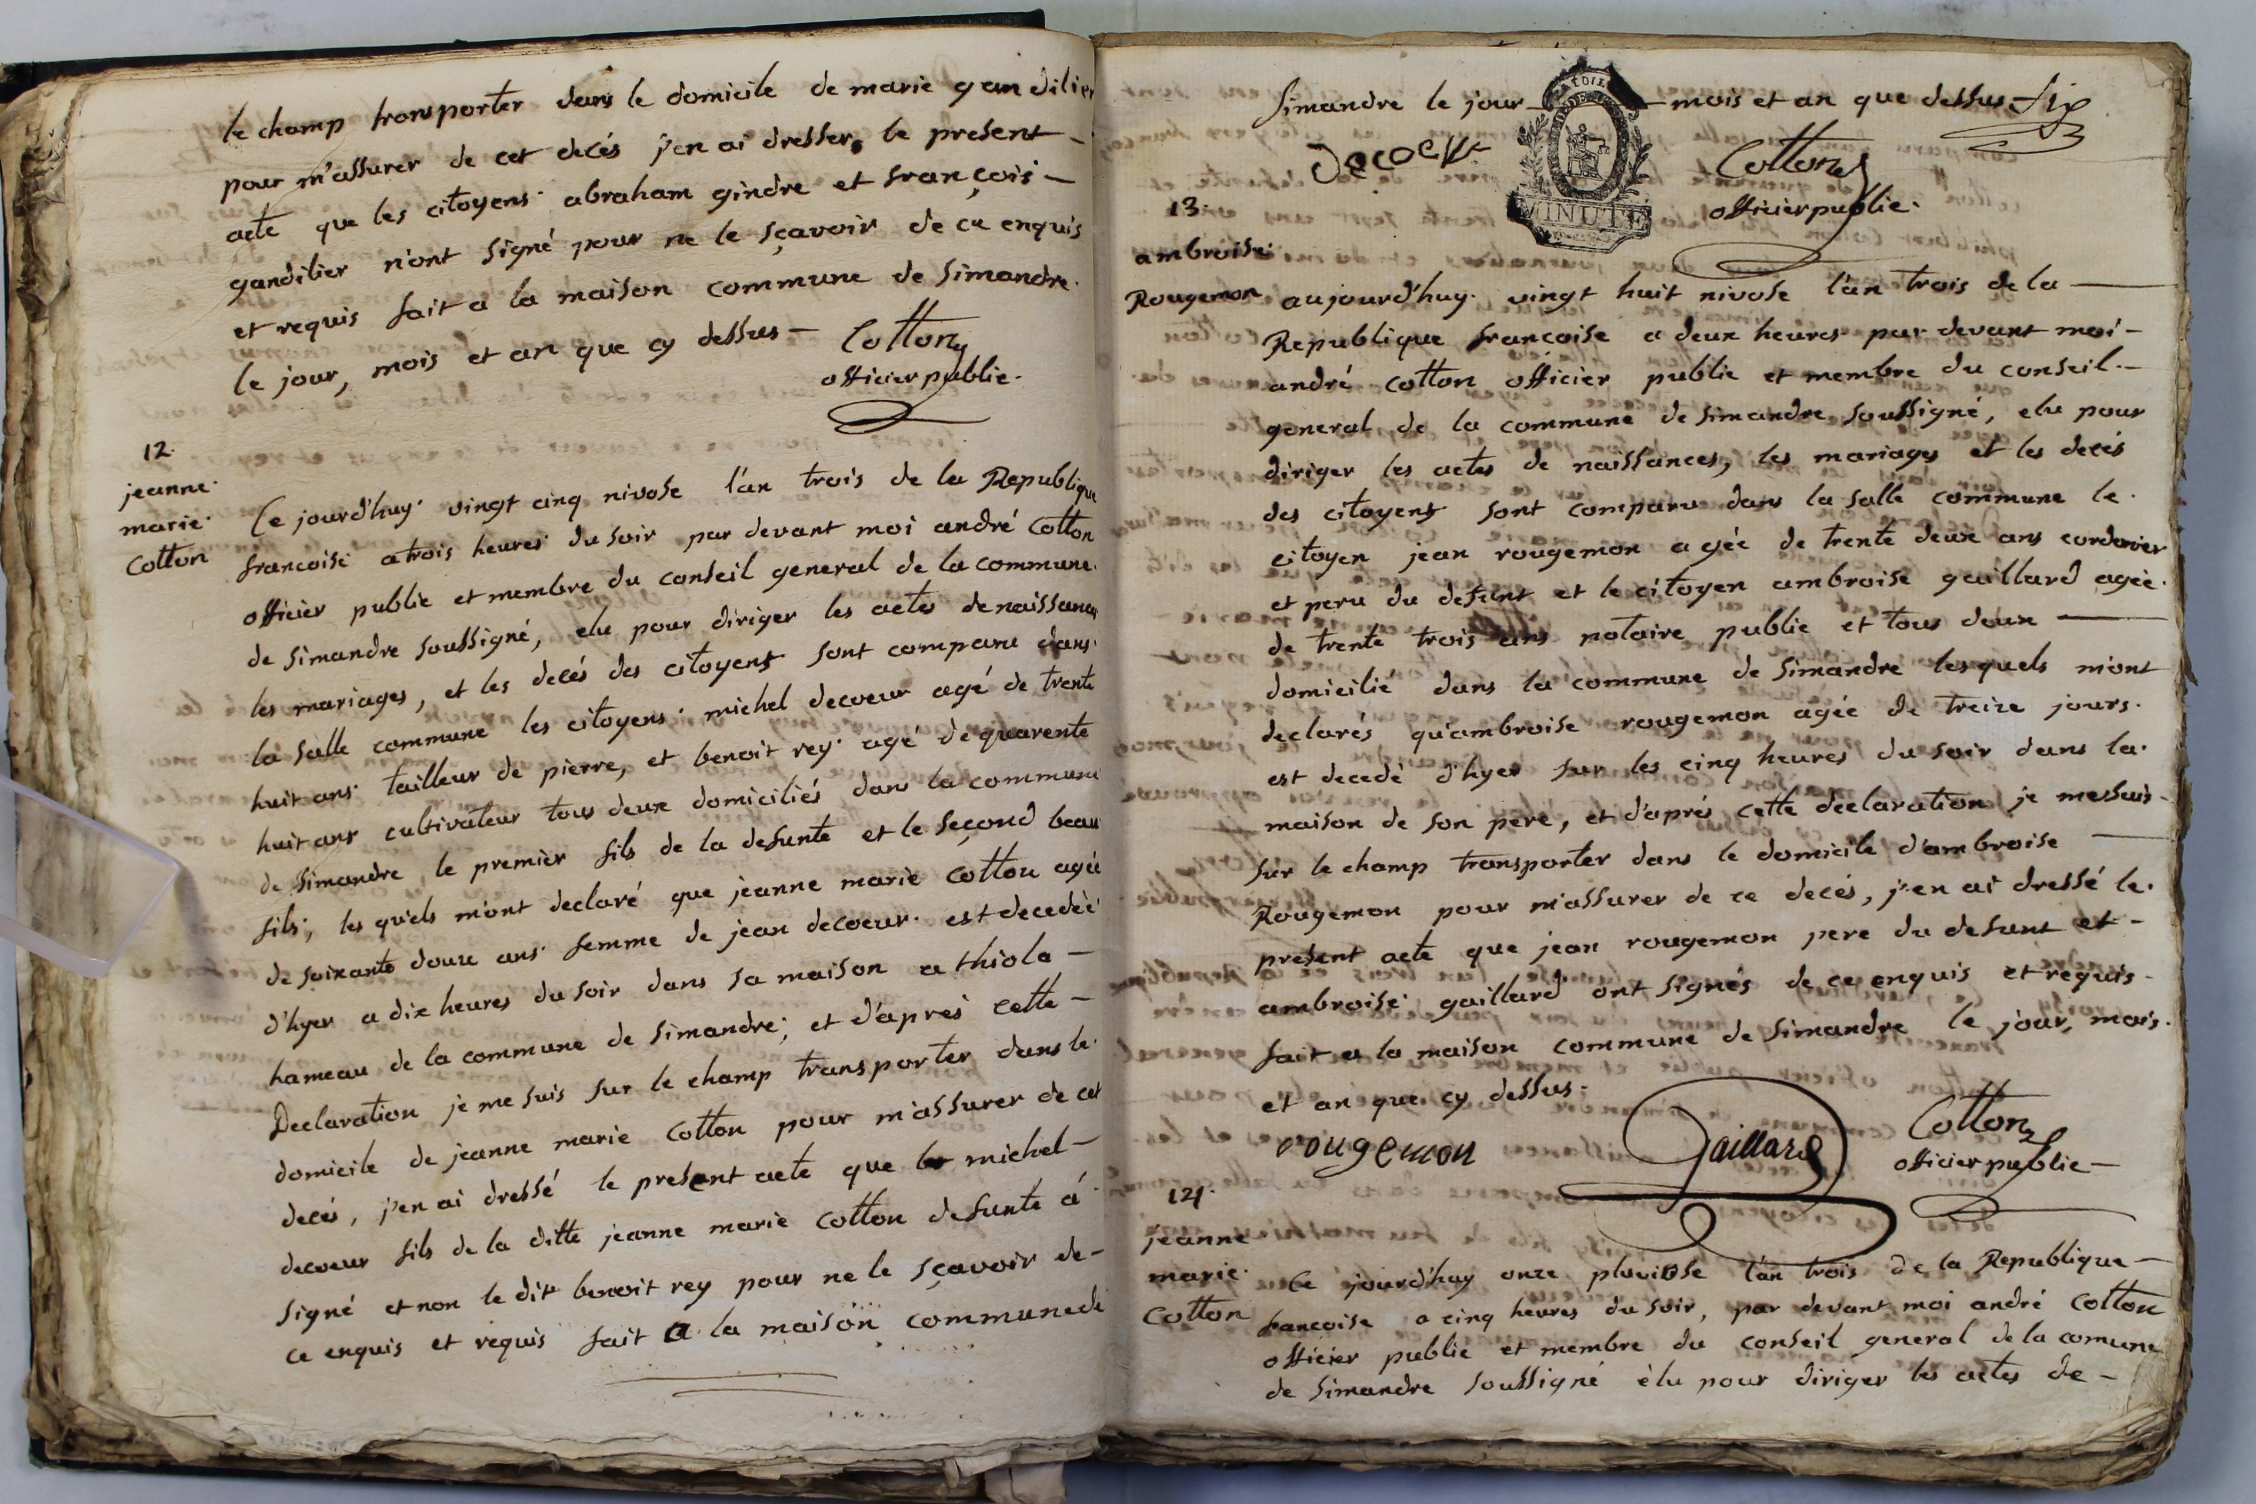 le champ transporter dans le domicile de marie gandilier
pour m'assurer de cet decés j'en ai dresser le present -
acte que les citoyens abraham gindre et françois -
gandilier n'ont signé pour ne le sçavoir de ce enquis
et requis fait a la maison commune de Simandre.
le jour, mois et an que cy dessus - Cotton
officier public.
12.
jeanne
marie
Cotton
Ce jourd'huy vingt cinq nivose l'an trois de la Republique
francoise a trois heures du soir par devant moi andré Cotton
officier public et membre du conseil general de la commune
de Simandre soussigné, elu pour diriger les actes de naissances
les mariages, et les decés des citoyens sont comparu dans
la salle commune les citoyens michel decoeur agé de trente
huit ans tailleur de pierre, et benoit rey agé de quarente
huit ans cultivateur tous deux domiciliés dans la commune
de Simandre le premier fils de la defunte et le sećond beau
fils, les quels m'ont declaré que jeanne marie Cotton agée
de soixante douze ans femme de jean decoeur est decedée
d'hyer a dix heures du soir dans sa maison a thiola -
hameau de la commune de Simandre, et d'aprés cette -
Declaration je me suis sur le champ transporter dans le
domicile de jeanne marie Cotton pour m'assurer de cet
decés, j'en ai dressé le present acte que michel -
decoeur fils de la ditte jeanne marie Cotton defunte á
signé et non le dit benoit rey pour ne le sçavoir de -
ce enquis et requis fait a la maison commune de
Simandre le jour mois et an que dessus Six
decoeur
MINUTE
Cotton
officier public.
13.
ambroise
Rougemon
aujourd'huy vingt huit nivose l'an trois de la
Republique francoise a deux heures par devant moi -
andré Cotton officier public et membre du conseil -
general de la commune de Simandre soussigné, elu pour
diriger les actes de naissances, les mariages et les decés
des citoyens sont comparu dans la salle commune le
citoyen jean rougemon agée de trente deux ans cordonier
et pere du defunt et le citoyen ambroise gaillard agée
de trente trois ans notaire public et tous deux
domicilié dans la commune de Simandre lesquels m'ont
declarés qu'ambroise rougemon agée de treize jours
est decedé d'hyer sur les cinq heures du soir dans la
maison de son pere, et d'aprés cette declaration je me suis
sur le champ transporter dans le domicile d'ambroise
Rougemon pour m'assurer de ce decés, j'en ai dressé le
present acte que jean rougemon pere du defunt et -
ambroise gaillard ont signés de ce enquis et requis
fait a la maison commune de Simandre le jour, mois
et an que cy dessus.
rougemon Gaillard Cotton
officier public
14.
jeanne
marie
Cotton
Ce jourd'huy onze pluviose l'an trois de la Republique -
francoise a cinq heures du soir, par devant moi andré Cotton
officier public et membre du conseil general de la comune
de Simandre soussigné èlu pour diriger les actes de -